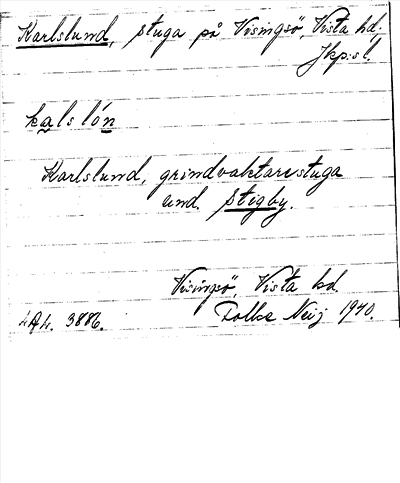 Karlslund, stuga på Visingsö, Vista hd.,
Jkp:s l.
kals lón
Karlslund, grindvaktarestuga
und. Stigby.
Visingsö, Vista hd.
Folke Neij 1940.
3886.